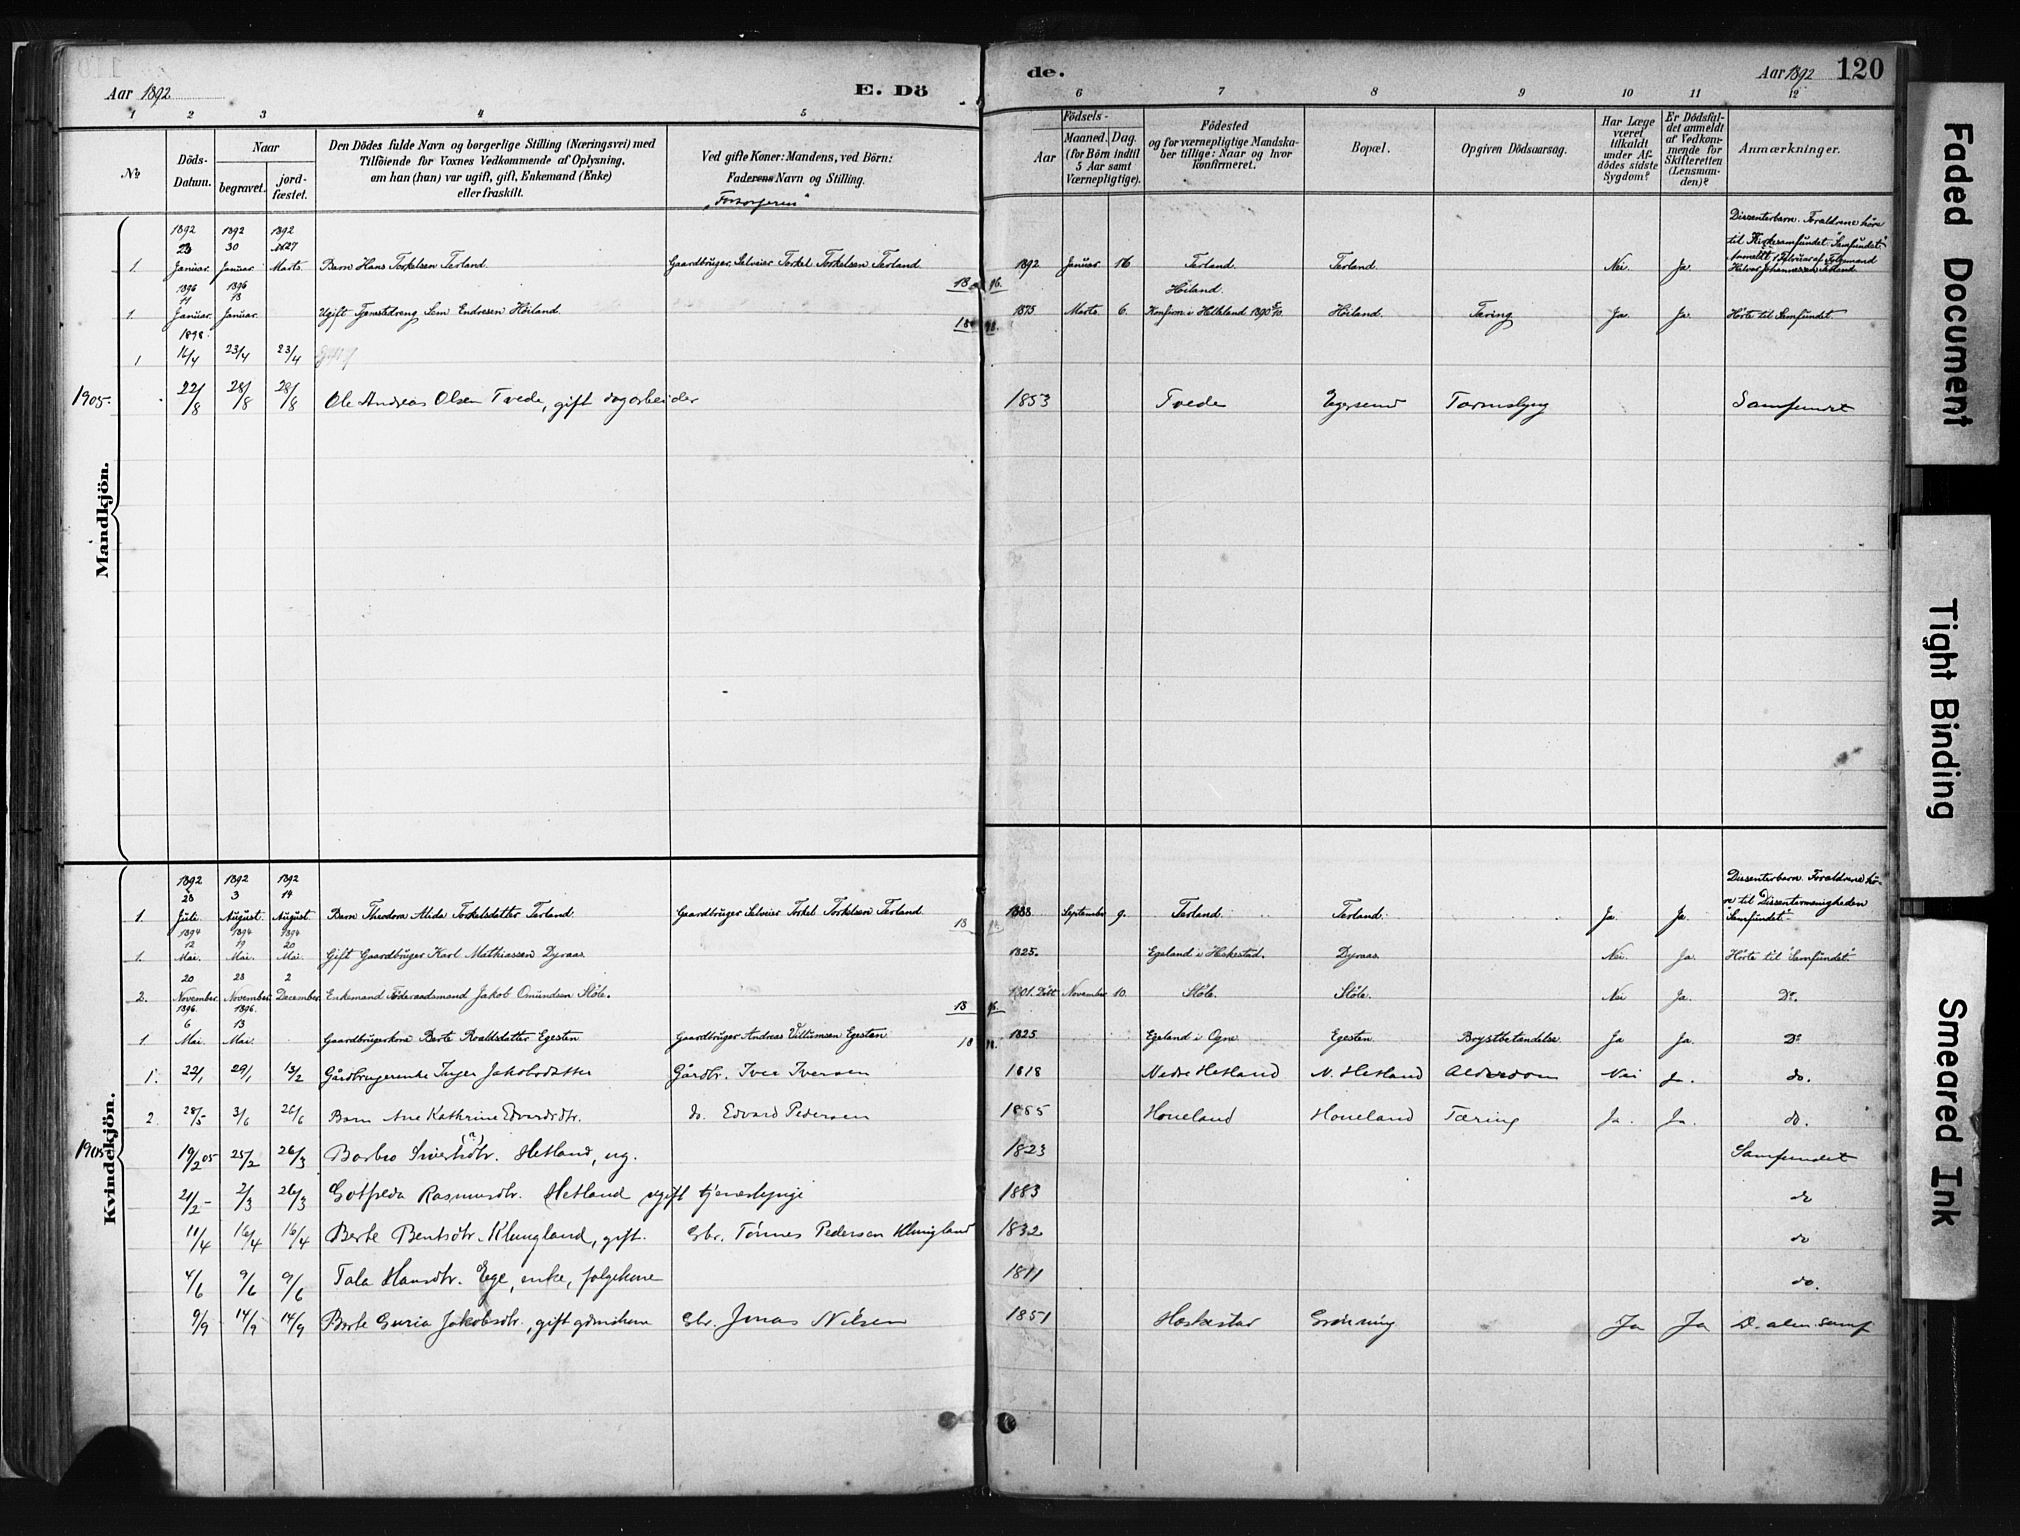 Aar 1892
E. Dö
de.
Aar 1892
120
1 2 3 4 5 6 7 8 9 10 11 12
№
Döds-
Datum.
Naar
begravet.
jord-
fæstet.
Den Dödes fulde Navn og borgerlige Stilling (Næringsvei) med
Tilföiende for Voxnes Vedkommende af Oplysning,
om han (hun) var ugift, gift, Enkemand (Enke)
eller fraskilt.
Ved gifte Koner: Mandens, ved Börn:
Faderens Navn og Stilling.
Aar
Födsels-
Maaned. Dag.
(for Börn indtil
5 Aar samt
Værnepligtige).
Födested
og for værnepligtige Mandska-
ber tillige: Naar og hvor
konfirmeret.
Bopæl.
Opgiven Dödsaarsag.
Har Læge
været
tilkaldt
under Af-
dödes sidste
Sygdom?
Er Dödsfal-
det anmeldt
af Vedkom-
mende for
Skifteretten
(Lensman-
den)?
Anmærkninger.
Mandkjön.
1892 1892 1892
23 30 27
Dissenterbarn. Forældrene höre
til Kirkesamfundet "Samfundet".
1. Januar Januar Marts Barn Hans Torkelsen Terland Gaardbruger, Selveier Torkel Torkelsen Terland 1892 Januar 16 Terland Terland Nei. Ja.
1896 1896
11 13
Höiland.
1. Januar Januar. Ugift Tjenestedreng Sem Endresen Höiland 1875 Marts 6. Konfirm. i Helleland 1890 Höiland Tæring Ja Ja. Hörte til Samfundet.
1898
1 16/4 23/4 23/4
1905. 22/8 28/8 28/8 Ole Andreas Olsen Tvede, gift dagarbeider 1853 Tvede Egersund Tarmslyng Samfundet
Kvindekjön.
1892 1892 1892
28 3 14
Dissenterbarn. Forældrene hö-
re til Dissentermenigheden
"Samfundet".
1. Juli August August Barn Theodora Alida Torkelsdatter Terland Gaardbruger Selveier Torkel Torkelsen Terland 1888 September 9. Terland Terland Ja Ja
1894 1894 1894
12 19 20
1. Mai. Mai. Mai. Gift Gaardbruger Karl Mathiassen Dyraas 1825. Egeland i Heskestad. Dyraas Nei Ja. Hörte til "Samfundet".
20 23 2
2. November November December Enkemand Föderaadsmand Jakob Omundsen Stöle. 1801. November 10. Stöle. Stöle. Nei Ja. Do.
1896. 1896.
6 13
1. Mai. Mai. Gaardbrugerkone Berte Roaldsdatter Egesten Gaardbruger Andreas Villumsen Egesten 1825 Egeland i Ogne Egesten Brystbetændelse Ja Ja. Do
1. 22/1 29/1 13/2 Gårdbrugerenke Inger Jakobsdatter Gårdbr. Iver Iversen 1818 Nedre Hetland N. Hetland Alderdom Nei Ja. do.
2. 28/5 3/6 26/6 Barn Ane Kathrine Edvardsdtr. do. Edvard Pedersen 1885 Houeland Houeland Tæring Ja. Ja. do.
1905 19/2 05 25/2 26/3 Barbro Sivertsdtr. Hetland, ug. 1823 Samfundet
21/2 - 2/3 26/3 Gotfreda Rasmusdtr. Hetland ugift tjenestepige 1883 do
11/4 16/4 16/4 Berte Bentsdtr. Klungland, gift. Gbr. Tönnes Pedersen Klungland 1832 do
4/6 9/6 9/6 Tala Hansdtr. Ege, enke, folgekone 1811 do.
9/9 14/9 14/9 Berte Guria Jakobsdtr., gift Gbr. Jonas Nilsen 1851 Heskestad Grönning Ja Ja D. alm. samf
Faded Document
Tight Binding
Smeared Ink